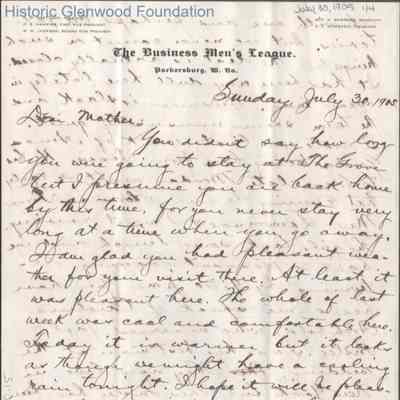 Historic Glenwood Foundation
July 30, 1905 1/4
The Business Men's League.
Parkersburg, W. Va.
Sunday, July 30, 1905
Dear Mother:
You didn't say how long
you were going to stay at The Grove
but I presume you are back home
by this time, for you never stay very
long at a time when you go away.
I am glad you had pleasant wea-
ther for your visit there. At least it
was pleasant here. The whole of last
week was cool and comfortable here.
Today it is warmer but it looks
as though we might have a cooling
rain tonight. I hope it will be pleas-